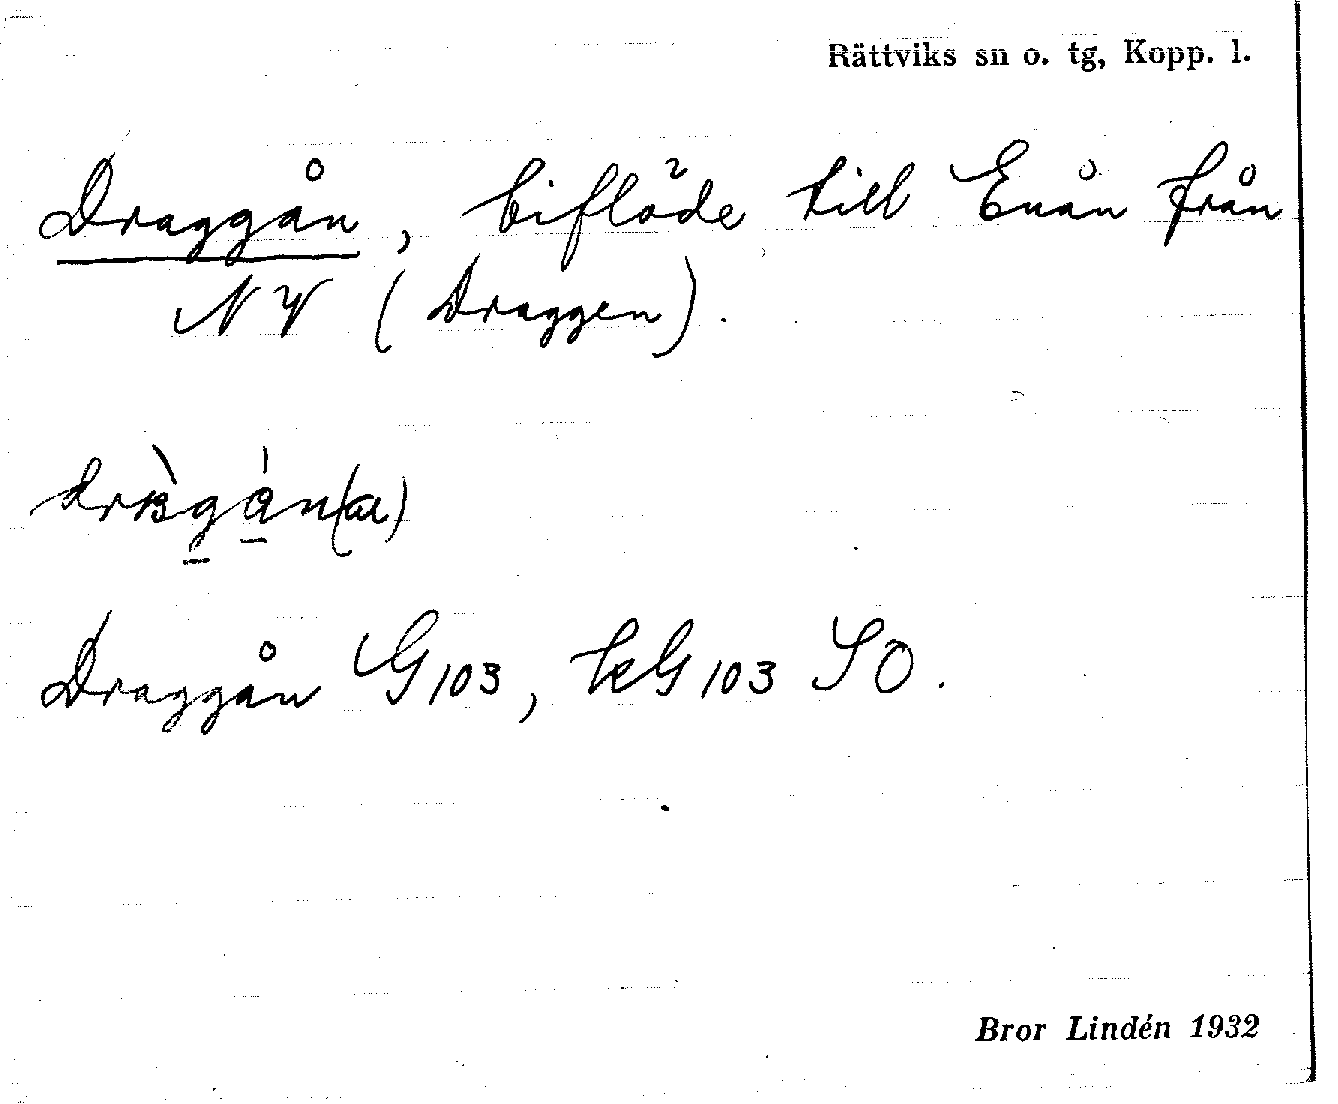 Rättviks sn o. tg, Kopp. l.
Draggån, biflöde till Enån från
NV (Draggen).
Draggån G103, kG103 SO.
Bror Lindén 1932